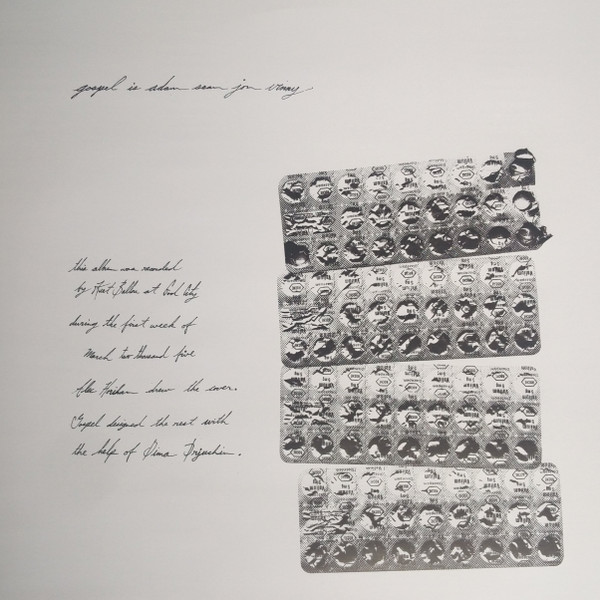 gospel is adam sean jon vinny
this album was recorded
by Kurt Ballou at God City
during the first week of
March two thousand five
drew the cover.
Gospel designed the rest with
the help of Dima
Valium
5 mg
ROCHE